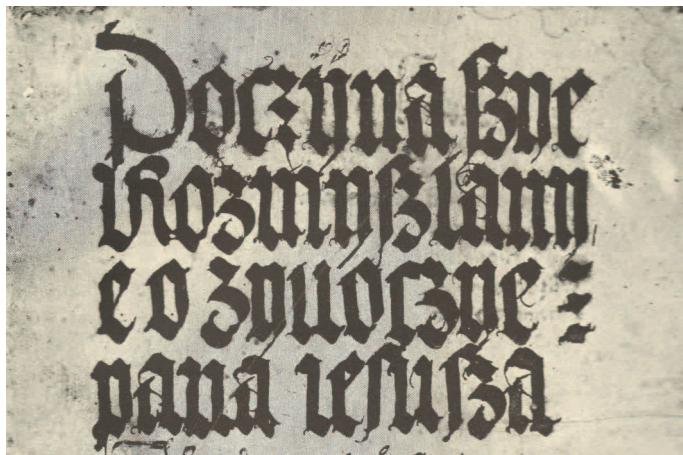 Poczyna ſzye
Rozmyſzlanỿ
e o zyuoczye =
pana ieſuſza